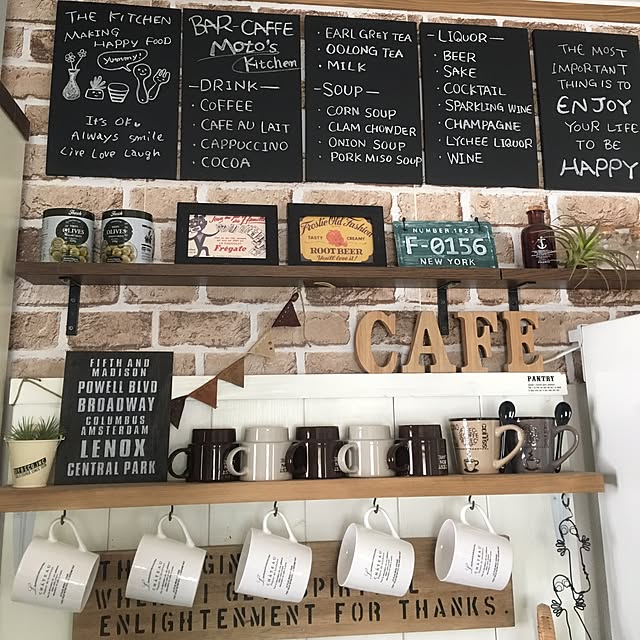 THE KITCHEN
MAKING
HAPPY FOOD
yummy!
It's OK.
Always smile
Live Love Laugh
BAR-CAFFE
Moto's
Kitchen
-DRINK-
· COFFEE
· CAFE AU LAIT
· CAPPUCCINO
· COCOA
· EARL GREY TEA
· OOLONG TEA
· MILK
-SOUP-
· CORN SOUP
· CLAM CHOWDER
· ONION SOUP
· PORK MISO SOUP
-LIQUOR-
· BEER
· SAKE
· COCKTAIL
· SPARKLING WINE
· CHAMPAGNE
· LYCHEE LIQUOR
· WINE
THE MOST
IMPORTANT
THING IS TO
ENJOY
YOUR LIFE
TO BE
HAPPY
OLIVES
OLIVES
Fregate
Frostie Old Fashion
TASTY CREAMY
ROOT BEER
You'll love it!
NUMBER.1923
F-0156
NEW YORK
CAFE
PANTRY
FIFTH AND
MADISON
POWELL BLVD
BROADWAY
COLUMBUS
AMSTERDAM
LENOX
CENTRAL PARK
ENLIGHTENMENT FOR THANKS.